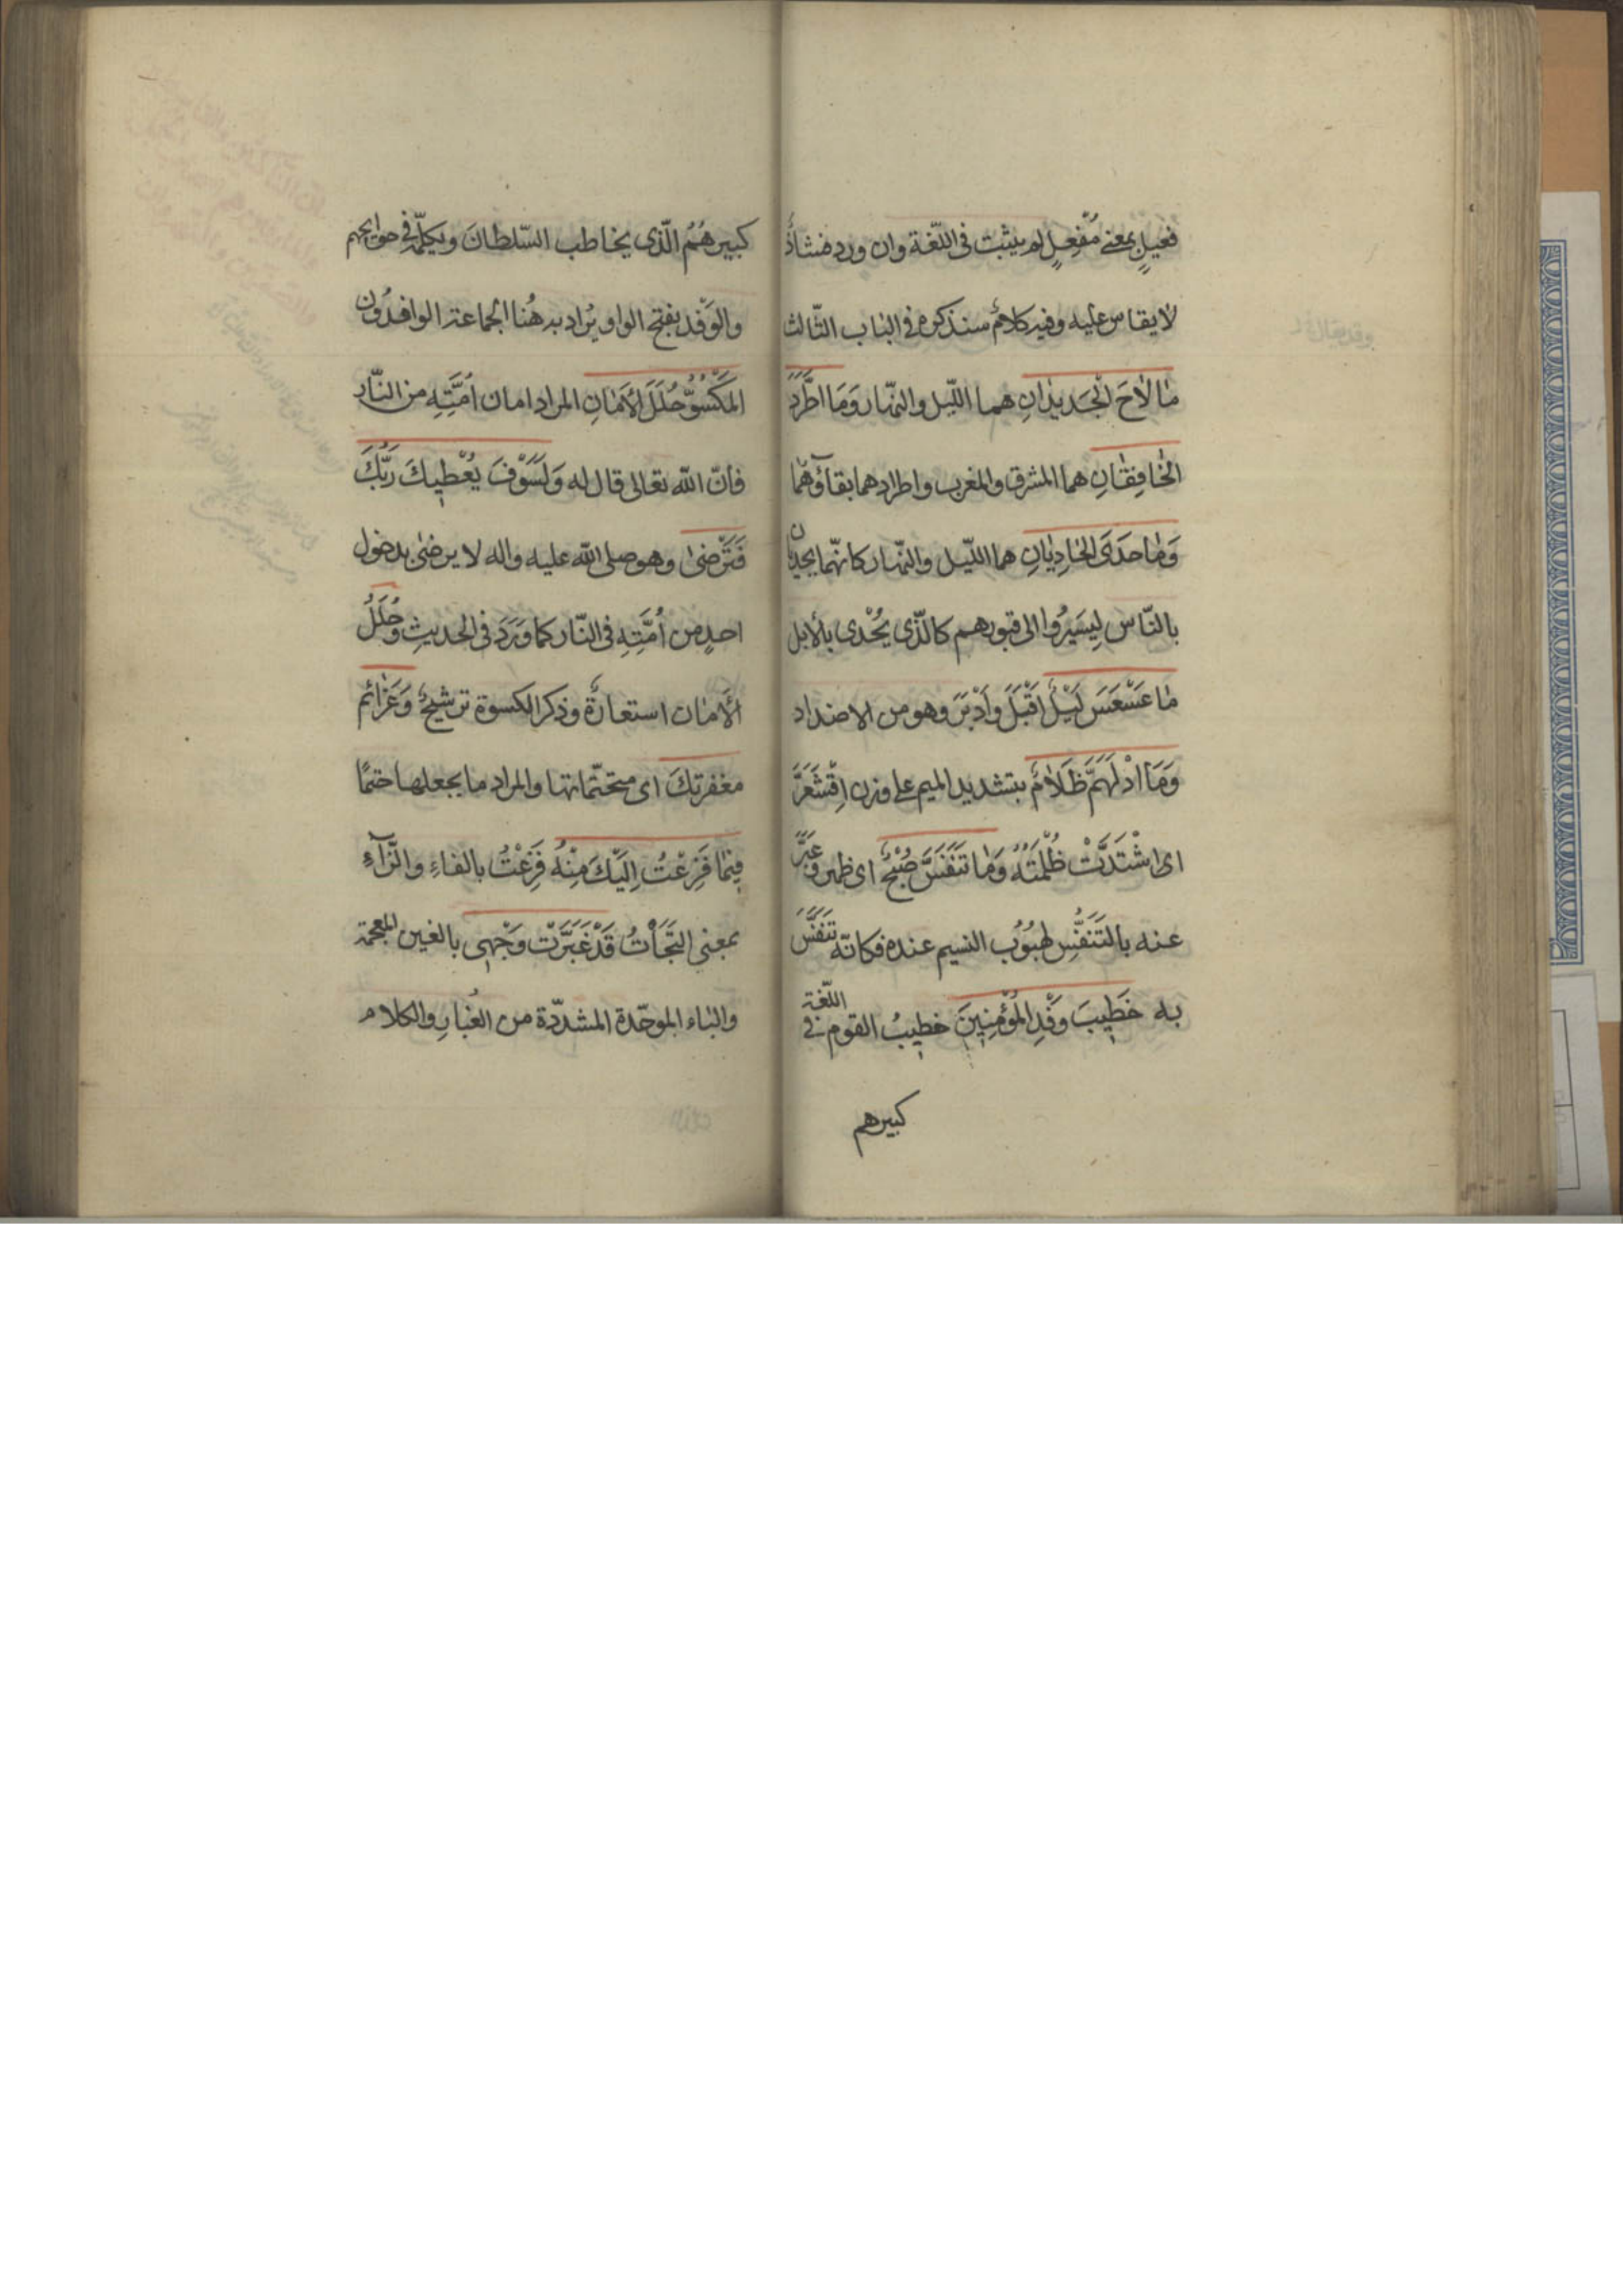 فَعيلٍ بمعنى مُفْعِلٍ لم يثبت فى اللّغة وان ورد فشاذٌ
لا يقاس عليه وفيه كلامٌ سنذكره فى الباب الثّالث
مٰا لٰاحَ الْجَديدٰانِ هما اللّيل والنّهار وَمَا اطَّرَدَ
الخٰافِقٰانِ هما المشرق والمغرب واطرادهما بقاؤهما
وَمٰا حَدَى الحٰادِيٰانِ هما اللّيل والنّهار كانّهما يحديان
بالنّاس لِيَسيرُوا الى قبورهم كالّذى يُحْدى بالأبل
مٰا عَسْعَسَ لَيْلٌ اَقْبَلَ وَاَدْبَرَ وهو من الاضداد
وَمَا ادْلَهَمَّ ظَلٰامٌ بتشديد الميم على وزن اِقْشَعَرَّ
اى اشْتَدَّتْ ظُلْمَتُهُ وَمٰا تَنَفَّسَ صُبْحٌ اى ظهر وَعَبَّرَ
عنه بالتَنَفُّسِ لهبُوُب النسيم عنده فكانّه تَنَفَّسَ
به خَطيبَ وَفْدِ الْمُؤْمِنينَ خطيبُ القوم فى اللّغة
كبيرهم
كبيرهُمُ الّذى يخاطب السّلطانَ ويكلّمه فى حوايجهم
والوَفْد بفتح الواو يُراد به هُنا الجماعة الوافدُون
المَكْسُوِّ حُلَلَ الأَمٰانِ المراد امان اُمَّتِهِ من النّار
فأنّ اللّه تعالى قال له وَلَسَوْفَ يُعْطيكَ رَبُّكَ
فَتَرْضىٰ وهو صلى اللّه عليه واله لا يرضىٰ بدخول
احدٍ من اُمَّتِهِ فى النّار كما وَرَدَ فى الحديثِ وَحُلَلُ
الأَمٰان استعارةٌ وذكر الكسوة ترشيحٌ وَعَزٰائم
مغفرتكَ اى متحتّماتها والمراد ما يجعلها حتمًا
فيمٰا فَزِعْتُ اِلَيْكَ مِنْهُ فَزِعْتُ بالفاءِ والزّاءِ
بمعنى التجَأْتُ قَدْ غَبَّرَتْ وَجْهى بالغين المعجمة
والباء الموحّدة المشدّدة من الغُبارِ والكلام